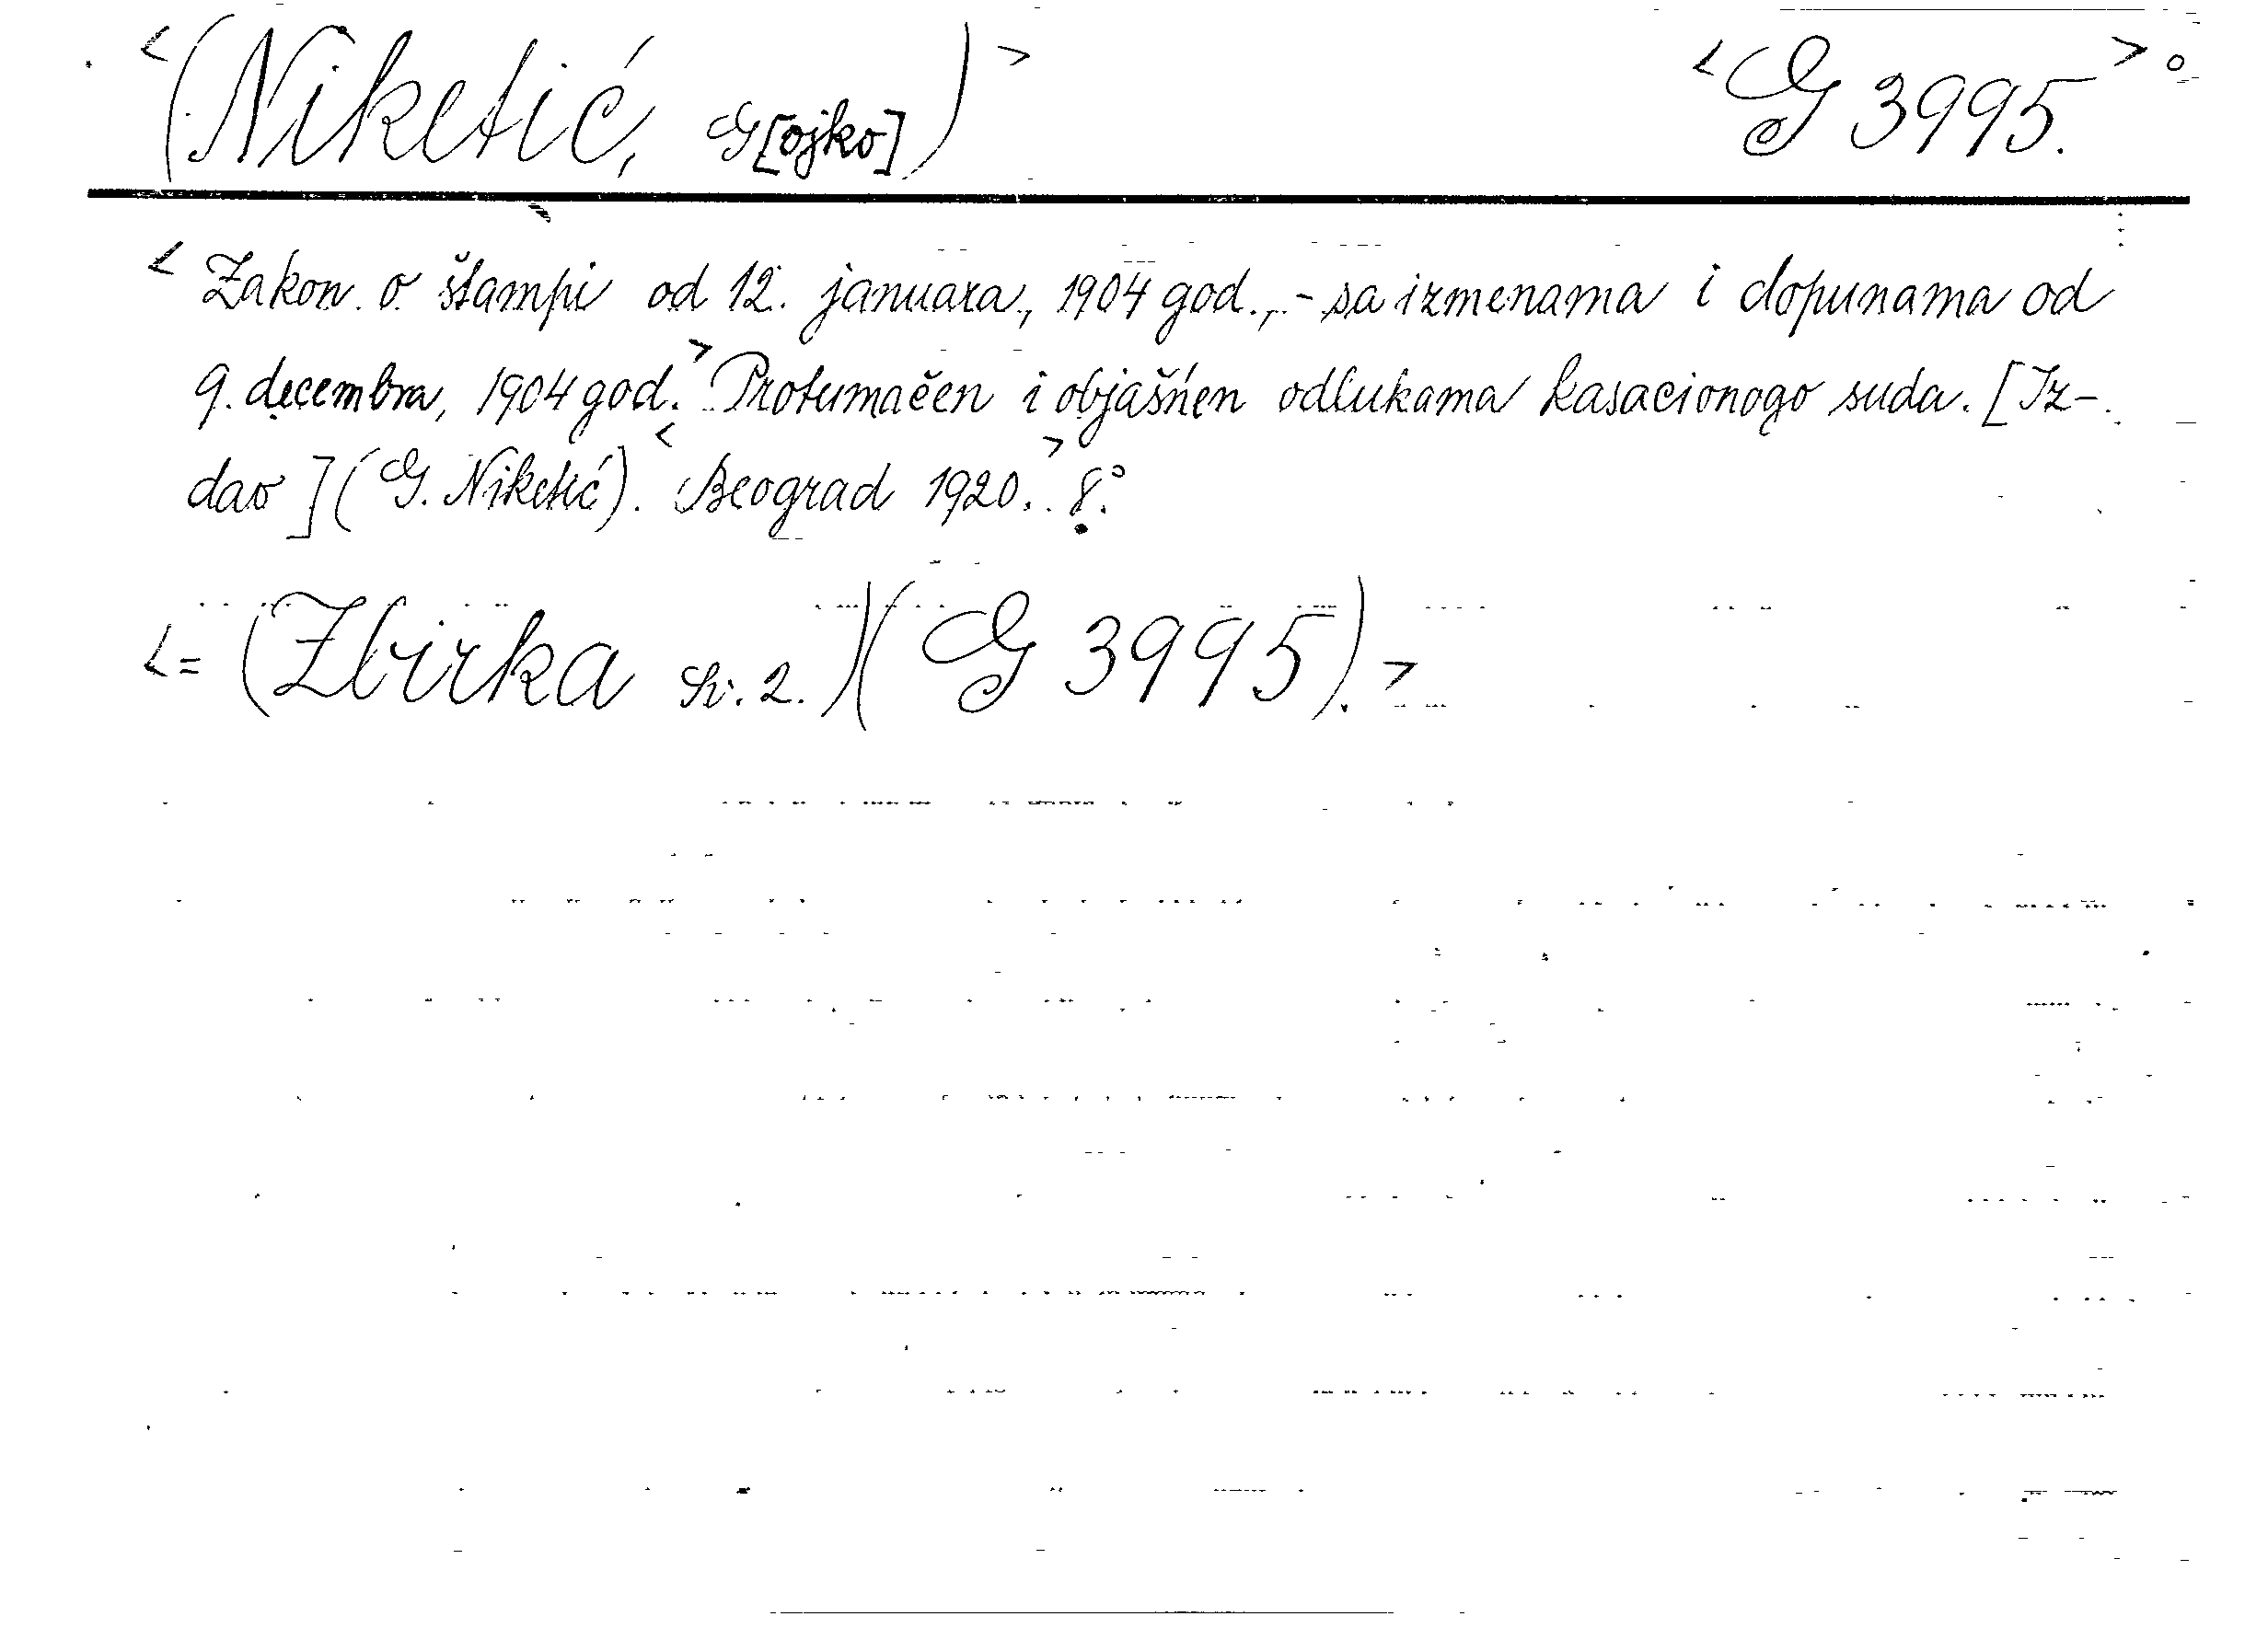 <(Niketić, G[ojko])> <G 3995.>°
<Zakon o štampi od 12. januara, 1904 god., - sa izmenama i dopunama od
9. decembra, 1904 god.> Protumačen i objašńen odlukama kasacionogo suda. [Iz-
dao] (G. Niketić). <Beograd 1920.> 8.°
<= (Zbirka sv. 2.)(G 3995).>